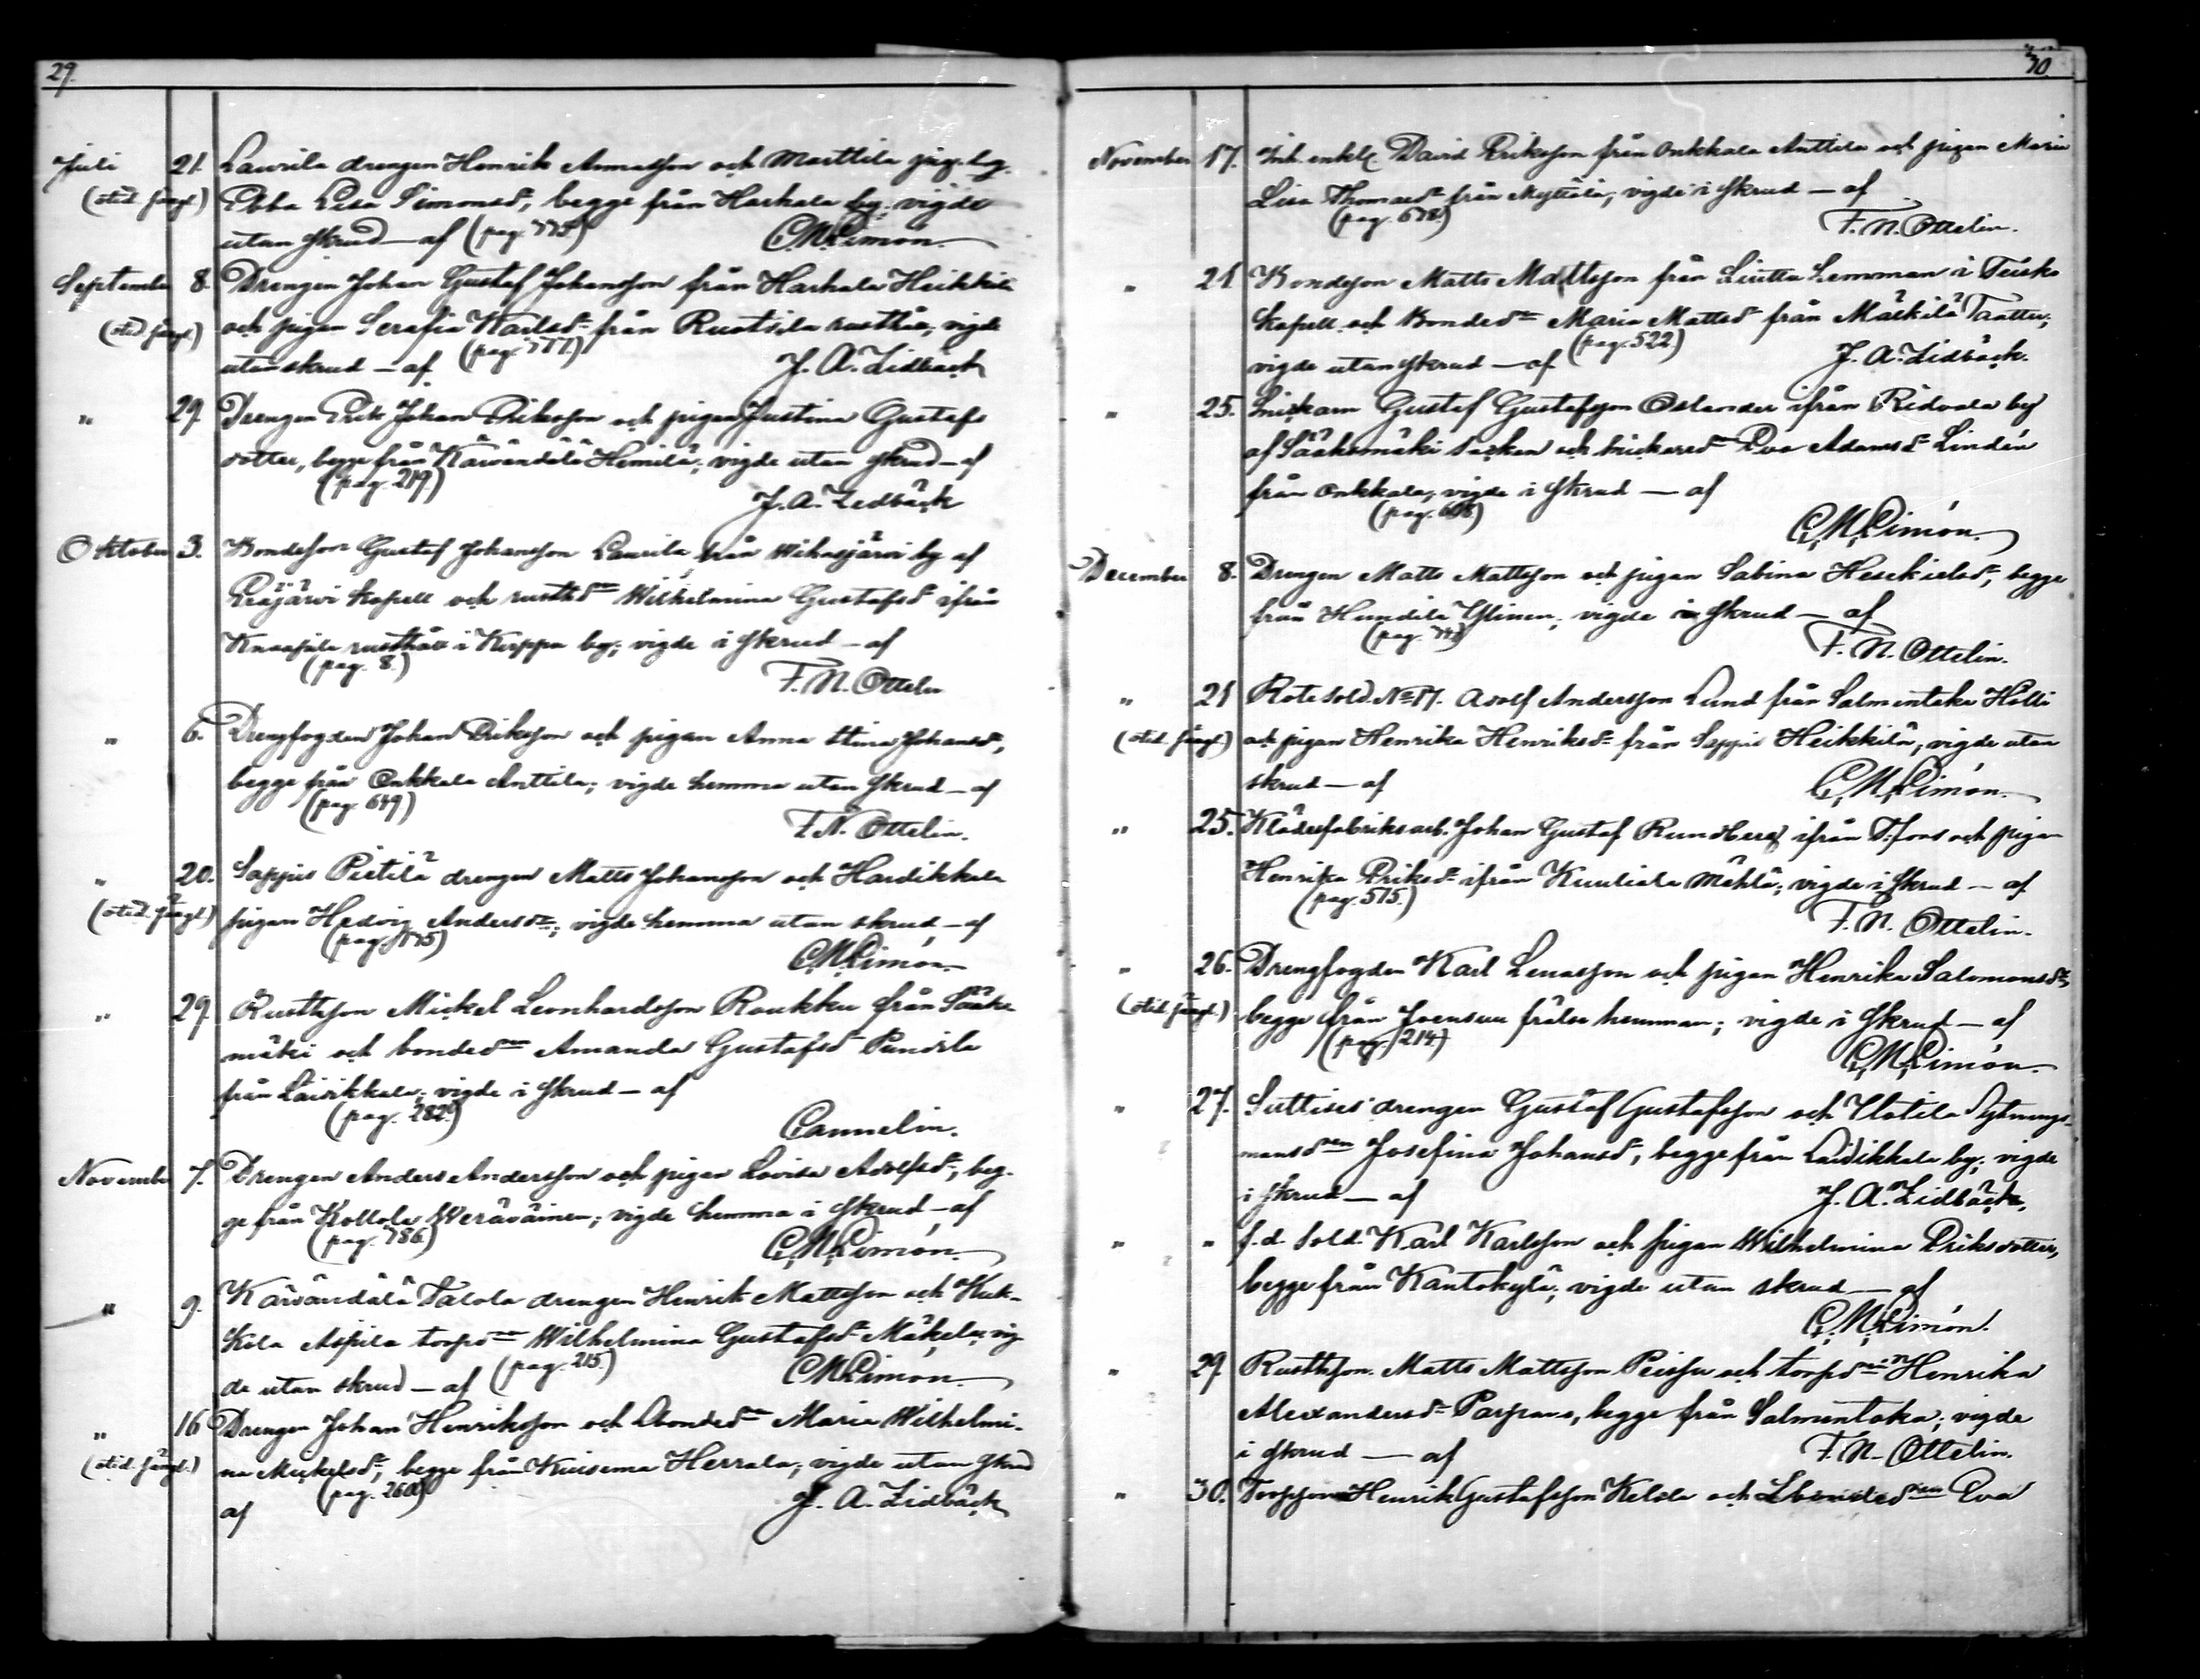 29.
Juli 21. Laurila drengen Henrik Annasson och Marttila pig. leg.
(oäd. fängt.) Ebba Lisa Simonsd:, begge från Harhala by; vigde
utan skrud – af (pag. 775) C. M. Limón.
September 8. Drengen Johan Gustaf Johansson från Harhala Heikkilä
och pigan Serafia Karlsd: från Ruotsila rusthåll; vigde
utan skrud – af (pag. 777.) J. A. Lidbäck
" 29. Drengen Erik Johan Eriksson och pigan Justina Gustafs
dotter, begge från Kärvändälä Hemilä; vigde utan skrud – af
(pag. 219.) J. A. Lidbäck
Oktober 3. Bondeson Gustaf Johansson Laurila från Wihasjärvi by af
Eräjärvi kapell och rusttd:n Wilhelmina Gustafsd: ifrån
Knaapila rusthåll i Kirppu by; vigde i skrud – af
(pag. 8.) F. N. Ottelin
" 6. Drengfogden Johan Eriksson och pigan Anna Stina Johansd:,
begge från Onkkala Anttila; vigde hemma utan skrud – af
(pag. 649) F. N. Ottelin.
" 20. Sappus Pietilä drengen Matts Johansson och Hardikkala
pigan Hedvig Andersd:; vigde hemma utan skrud – af
C. M. Limón
" 29. Rusttson Mickel Leonhardsson Roukku från Sääks-
mäki och bonded:n Amanda Gustafsd: Pundila
från Laivikkala; vigde i skrud – af
(pag. 282.) Cannelin.
November 7. Drengen Anders Andersson och pigan Lovisa Adolfsd:, beg-
ge från Kollola Weräväinen; vigde hemma i skrud – af
(pag. 786) C. M. Limón.
" 9. Kärvändälä Talola drengen Henrik Mattsson och Kuk-
kola Aspila torpd:n Wilhelmina Gustafsd: Mäkelä; vig
de utan skrud – af (pag. 215.) C. M. Limón.
" 16 Drengen Johan Henriksson och Lbonded:n Maria Wilhelmi-
na Mickelsd:, begge från Kuisema Herrala; vigde utan skrud
af J. A. Lidbäck
30
November 17. Inh. enkl. David Eriksson från Onkkala Anttila och pigan Maria
Lisa Thomasd: från Myttälä; vigde i skrud – af
(pag. 678.) F. N. Ottelin.
" 21 Bondeson Matts Mattsson från Liutta Lemman i Teisko
kapell och Bonded:n Maria Mattsd: från Mälkilä Taatter;
vigde utan skrud – af (pag. 522) J. A. Lidbäck.
" 25. Snickaren Gustaf Gustafsson Oslander ifrån Ridvala by
af Sääksmäki socken och snickared:n Eva Adamsd: Lindén
från Onkkala; vigde i skrud – af
C. M. Limón.
December 8. Drengen Matts Mattsson och pigan Sabina Hesekielsd:, begge
från Hundila Ylinen; vigde i skrud – af
F. N. Ottelin.
" 21 Rotesold. No 17. Adolf Andersson Lund från Salmentaka Hölli
och pigan Henrika Henriksd: från Sappus Heikkilä; vigde utan
skrud – af C. M. Limón.
" 25. Klädesfabriksarb. Johan Gustaf Rundberg ifrån T:fors och pigan
Henrika Eriksd: ifrån Kuuliala Mähla; vigde i skrud – af
(pag. 575.) F. N. Ottelin.
" 26. Drengfogden Karl Lenasson och pigan Henrika Salomonsd:
begge från Joensuu frälse hemman; vigde i skrud – af
(pag. 214) C. M. Limón.
" 27. Suttises drengen Gustaf Gustafsson och Ylotila Sytnings-
mansd:n Josefina Johansd:, begge från Laivikkala by; vigde
i skrud – af J. A. Lidbäck.
" " f. d. Sold. Karl Karlsson och pigan Wilhelmina Eriksdotter,
begge från Kantokylä; vigde utan skrud – af
C. M. Limón.
" 29 Rusttson. Matts Mattsson Peissu och torpd:n Henrika
Alexandersd: Parpans, begge från Salmentaka; vigde
i skrud – af F. N. Ottelin.
" 30. Torpson Henrik Gustafsson Kelola och Lbonded:n Eva